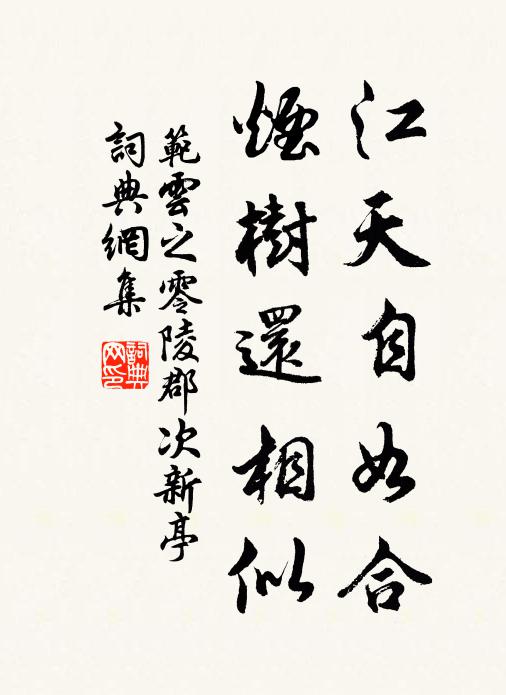 江天自如合
烟樹還相似
範雲之零陵郡次新亭
詞典網集
詞典網印